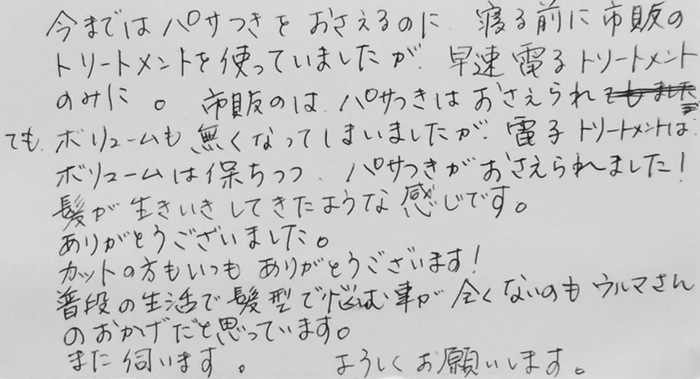 今まではパサつきをおさえるのに 寝る前に市販の
トリートメントを使っていましたが、早速電子トリートメント
のみに。市販のは パサつきはおさえられ
ても、ボリュームも無くなってしまいましたが、電子トリートメントは
ボリュームは保ちつつ、パサつきがおさえられました!
髪が生きいきしてきたような感じです。
ありがとうございました。
カットの方もいつもありがとうございます!
普段の生活で髪型で悩む事が全くないのもウルマさん
のおかげだと思っています。
また伺います。 ようしくお願いします。